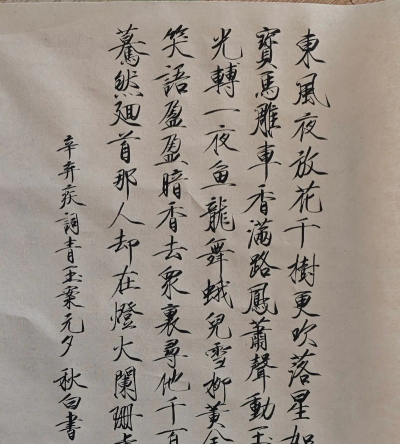 東風夜放花千樹更吹落星如
寶馬雕車香滿路鳳蕭聲動玉
光轉一夜魚龍舞蛾兒雪柳黃金
笑語盈盈暗香去衆裏尋他千百
驀然廻首那人却在燈火闌珊
辛弃疾詞青玉案元夕 秋白書